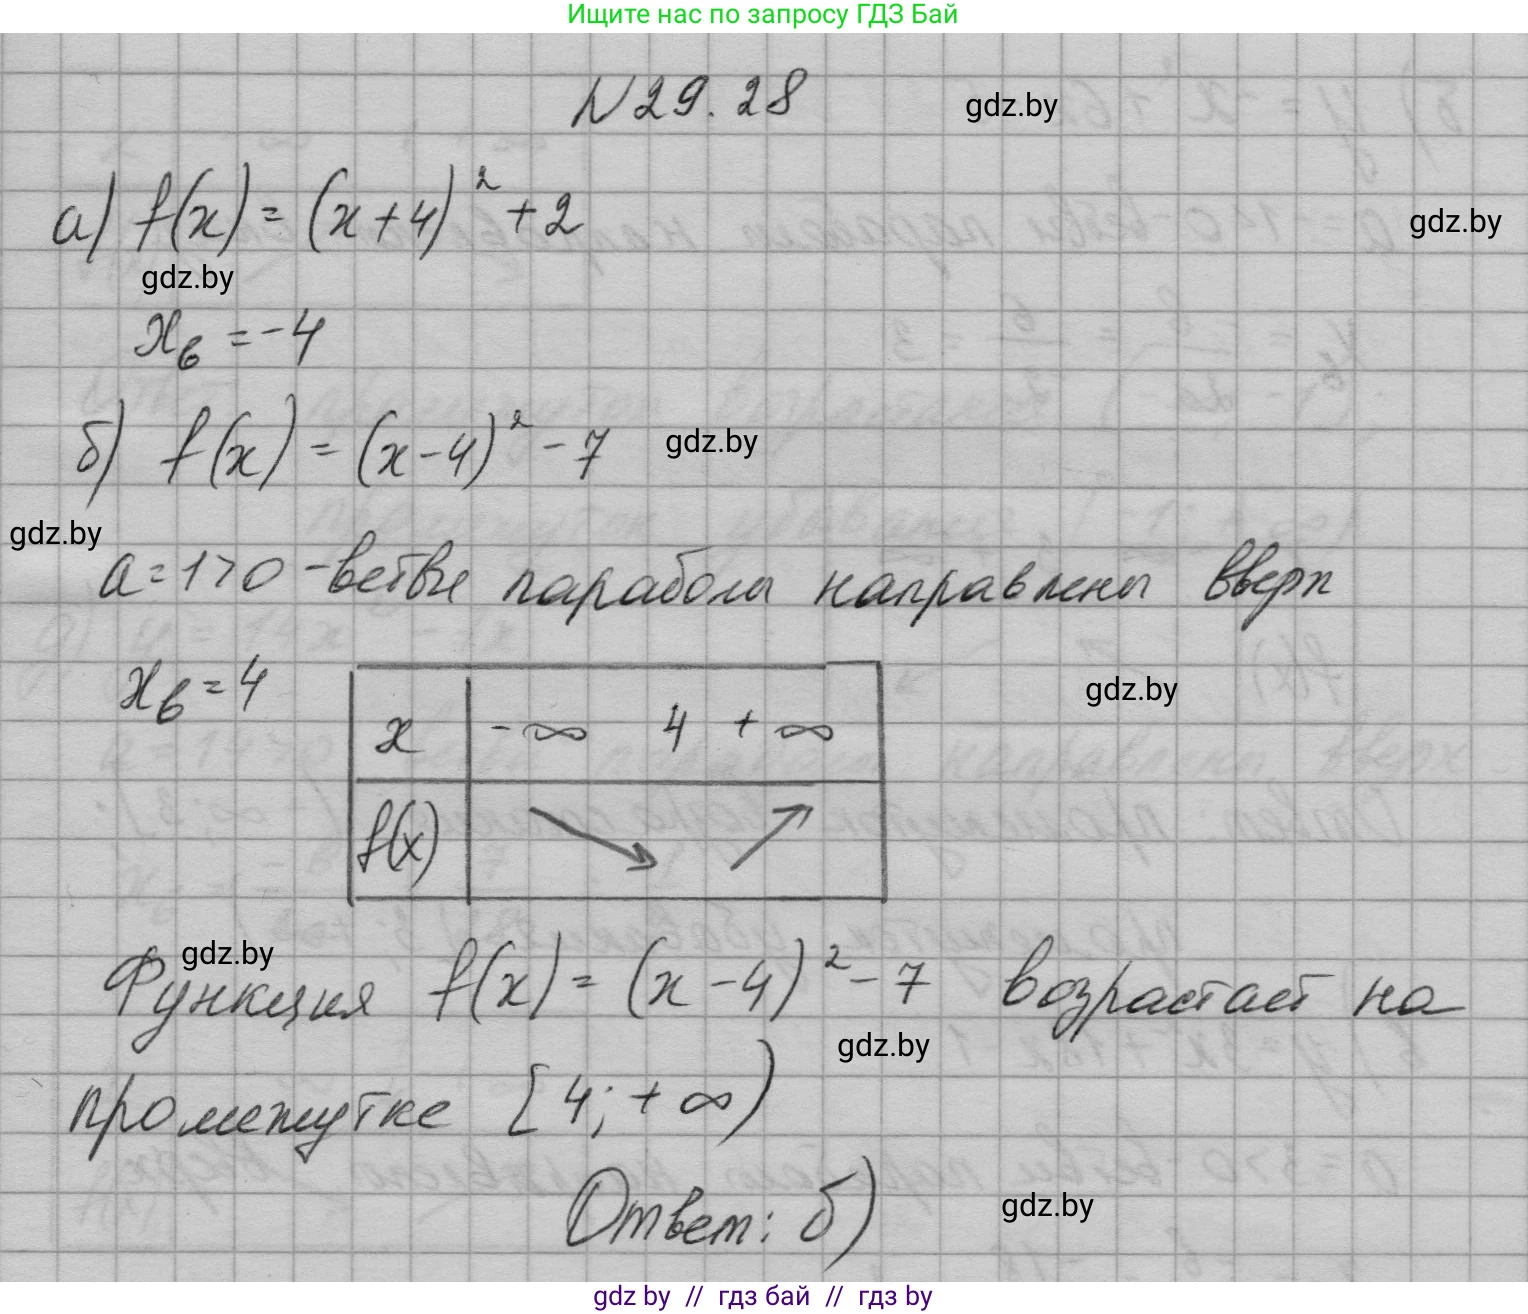 Ищите нас по запросу ГДЗ Бай
N 29.28
gdz.by
а) f(x) = (x+4)² + 2
gdz.by
gdz.by
xв = -4
б) f(x) = (x-4)² - 7
gdz.by
gdz.by
a=1>0 - ветви параболы направлены вверх
xв = 4
gdz.by
x -∞ 4 +∞
f(x) ↘ ↗
gdz.by
Функция f(x) = (x-4)² - 7 возрастает на
gdz.by
промежутке [4; +∞)
Ответ: б)
gdz.by
gdz by // гдз бай // гдз by